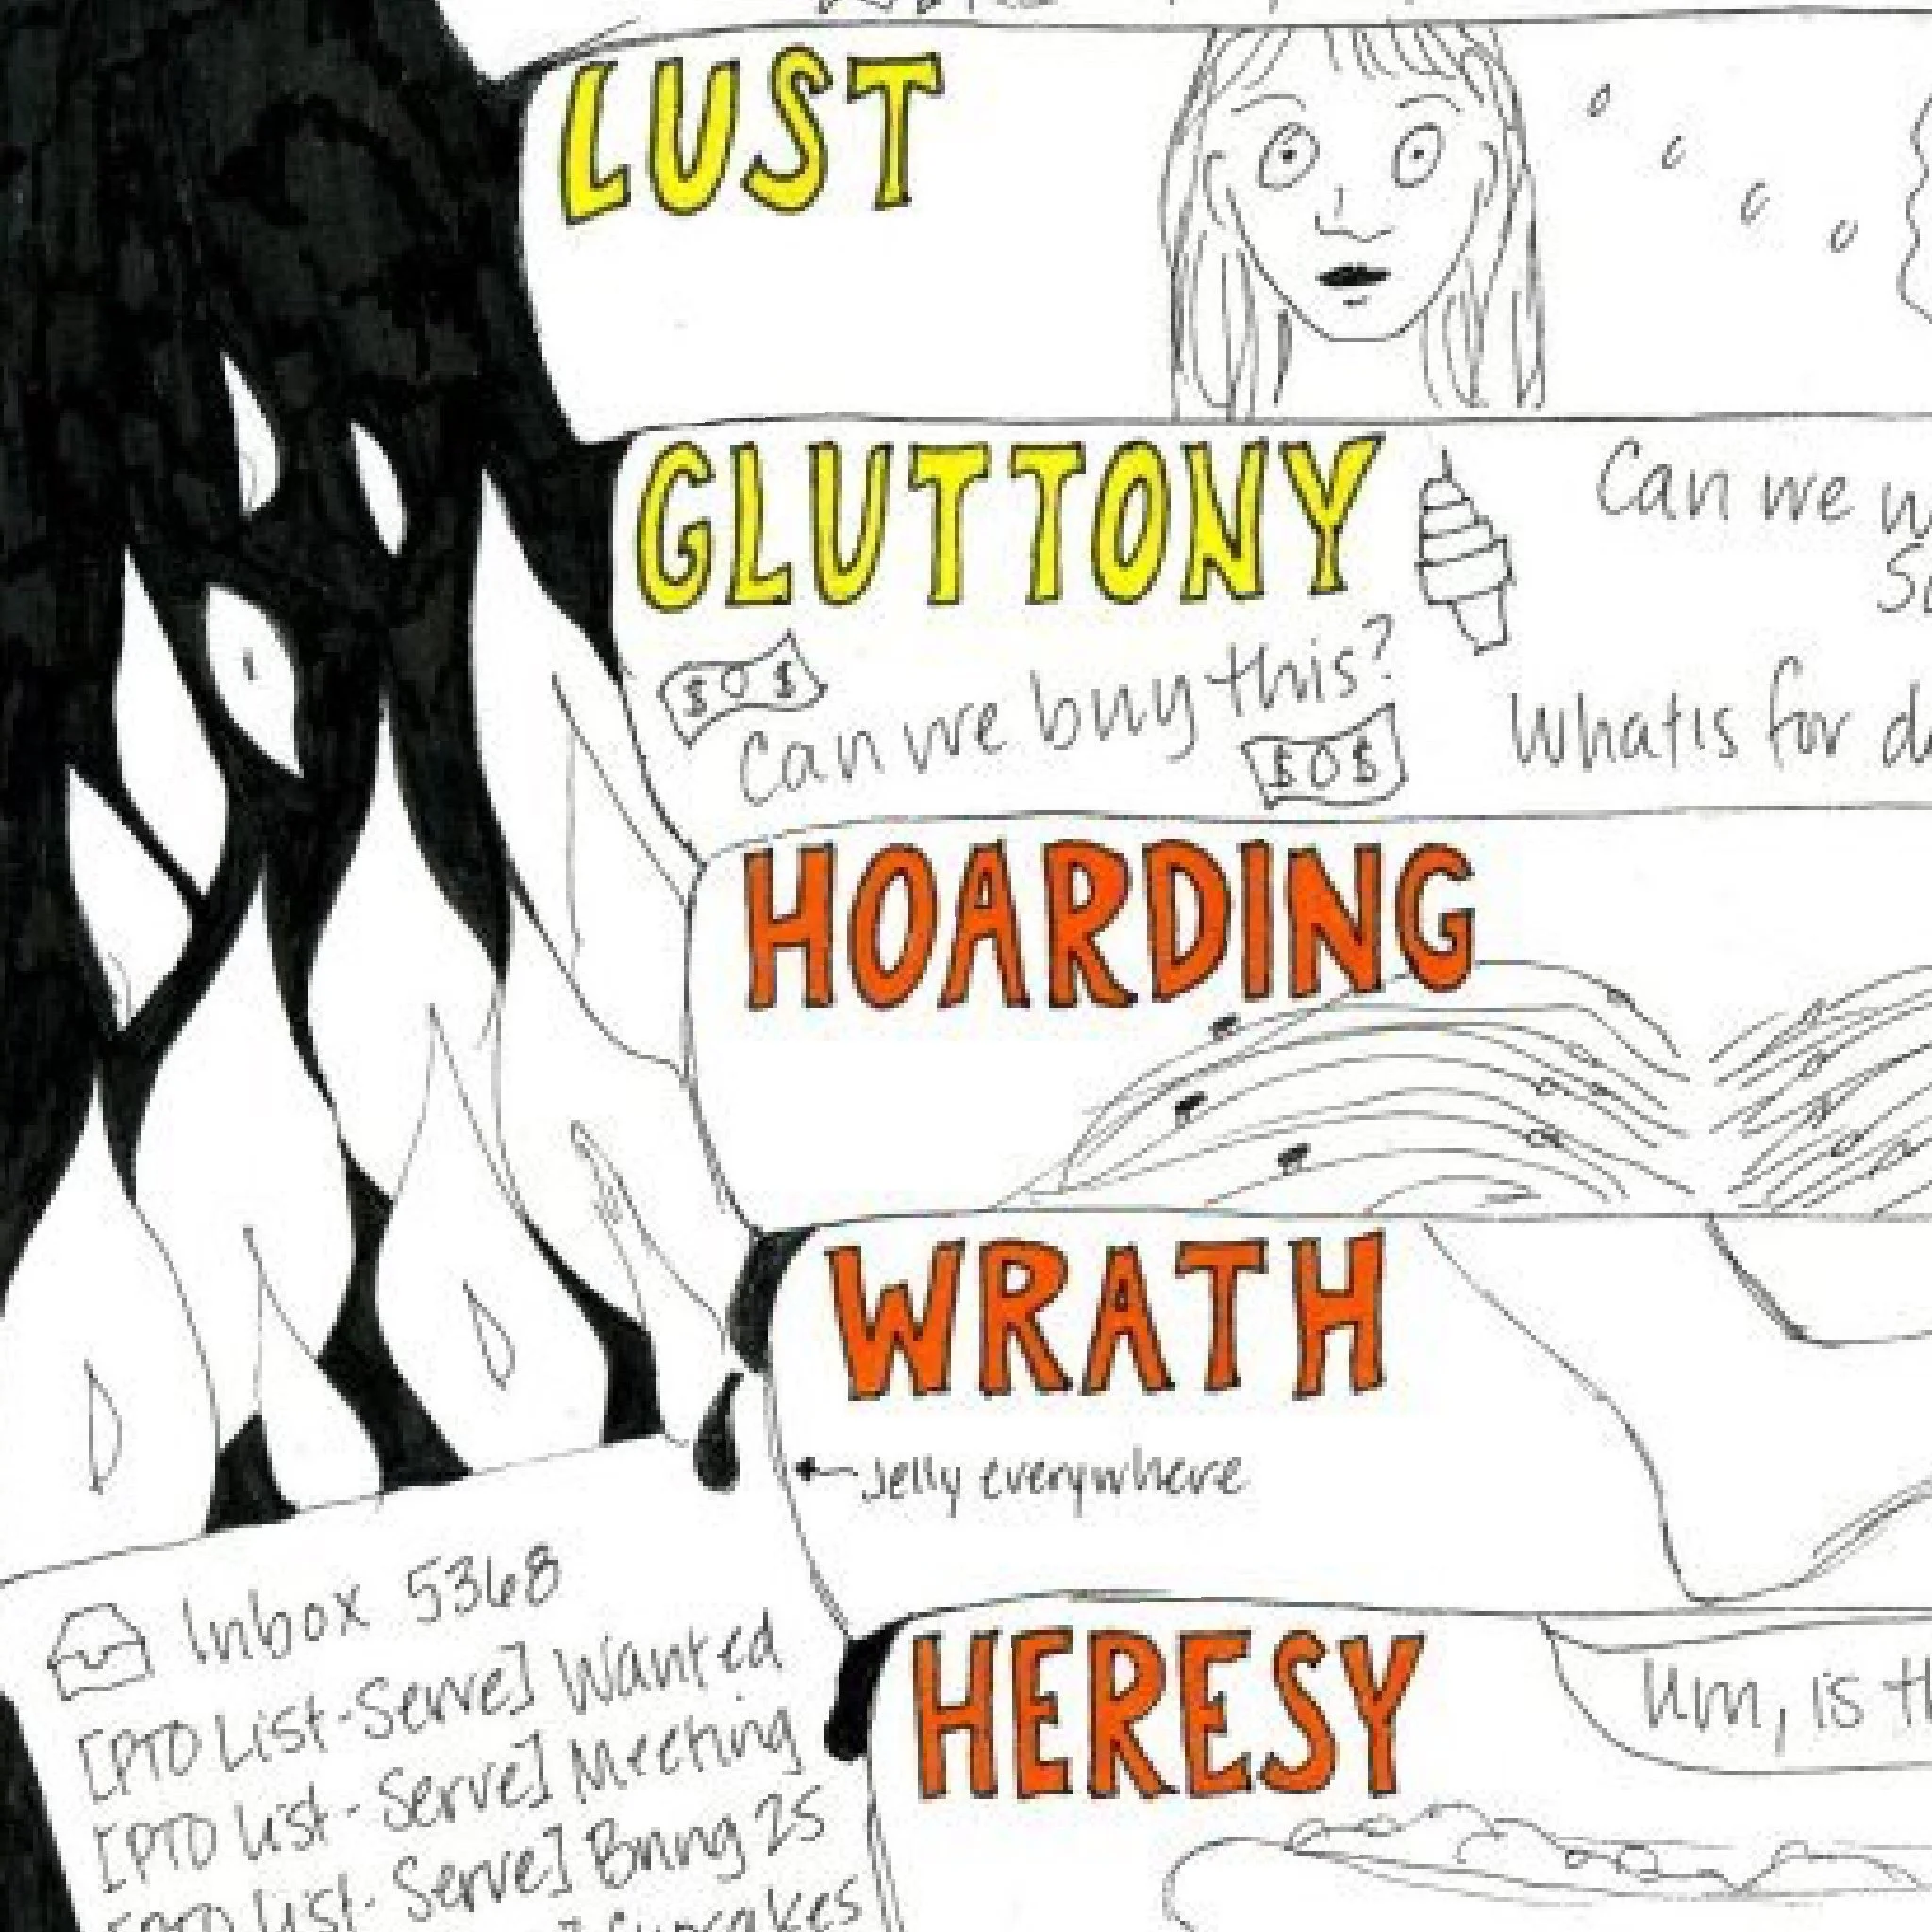 LUST
GLUTTONY
Can we
$0$
Can we buy this?
$0$
What is for
HOARDING
WRATH
Jelly everywhere
HERESY
Um, is
Inbox 5368
[PTO List-Serve] Wanted
[PTO List-Serve] Meeting
[PTO List-Serve] Bring 25
Cupcakes